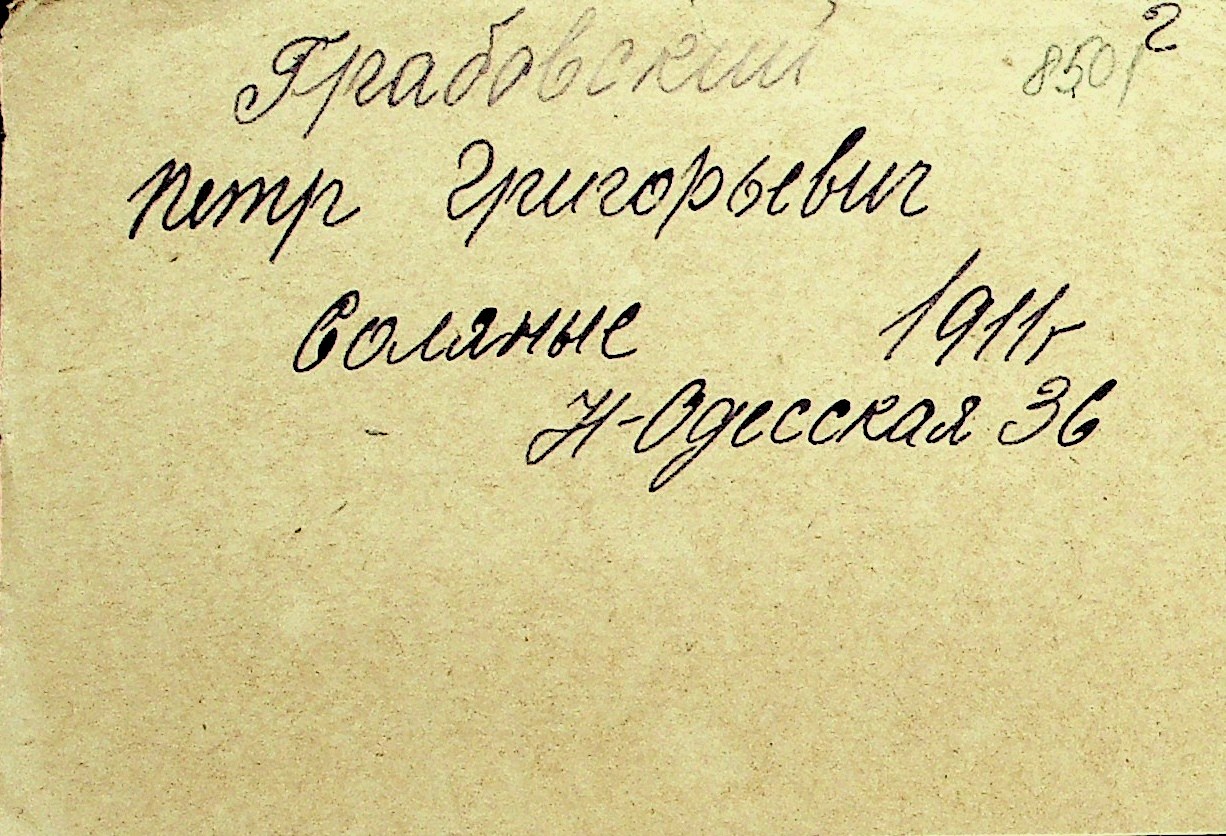 2
Грабовский 8501
Петр Григорьевич
Соляные 1911г
Н-Одесская 36